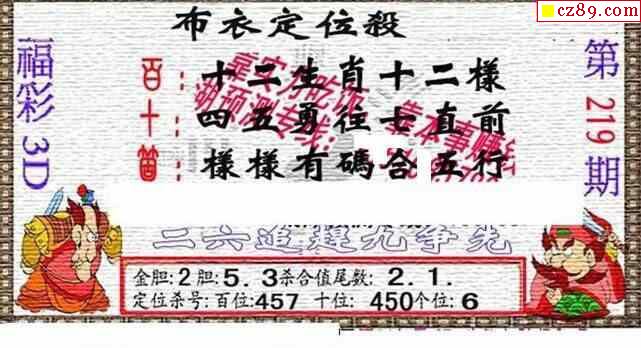 cz89.com
布衣定位殺
福彩3D
第219期
百：十二生肖十二樣
十：四五勇往七直前
個：樣樣有碼合五行
二六追趕九争先
金胆：2胆：5.3杀合值尾数：2.1.
定位杀号：百位：457 十位：450个位：6